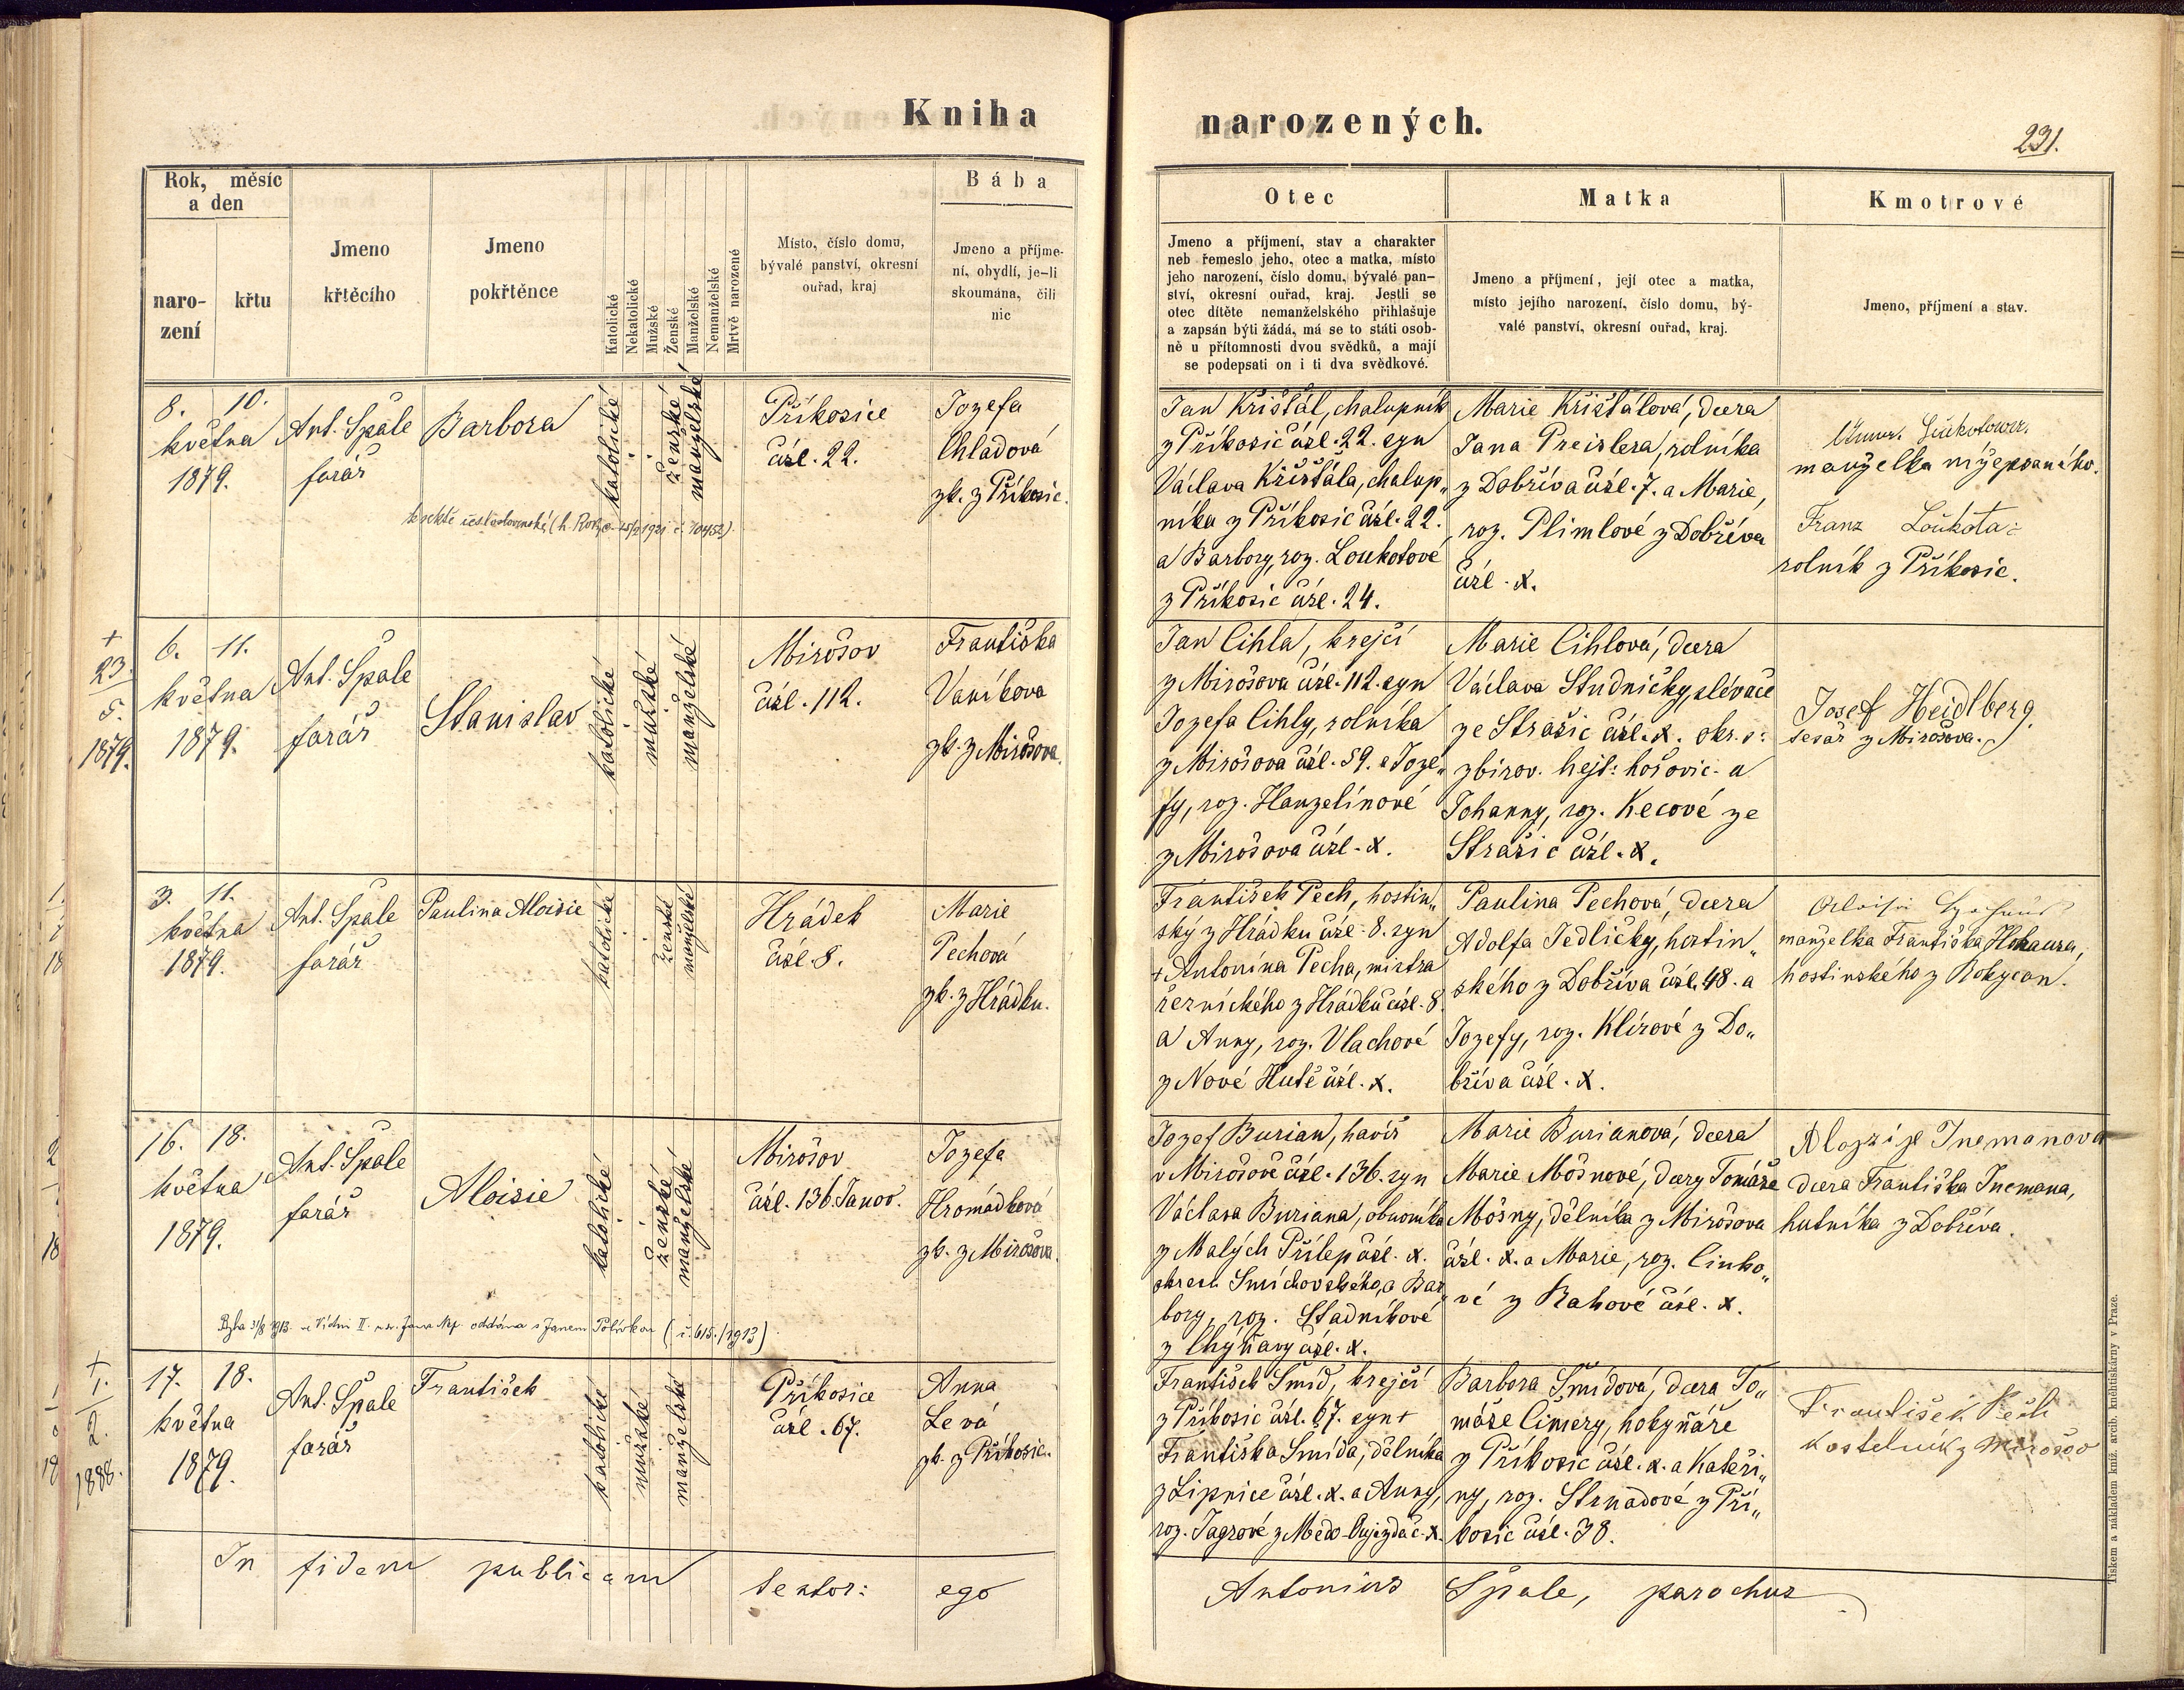 Kniha
Rok, měsíc
a den
naro-
zení
křtu
Jmeno
křtěcího
Jmeno
pokřtěnce
Katolické
Nekatolické
Mužské
Ženské
Manželské
Nemanželské
Mrtvě narozené
Místo, číslo domu,
bývalé panství, okresní
ouřad, kraj
Bába
Jmeno a příjme-
ní, obydlí, je-li
skoumána, čili
nic
8. 10.
května
1879.
Ant. Špale
farář
Barbora
katolické
ženské
manželské
Příkosice
čísl. 22.
Jozefa
Chladová
zk. z Příkosic.
6. 11.
května
1879.
+
23.
5.
1879.
Ant. Špale
farář
Stanislav
katolické
mužské
manželské
Mirošov
čísl. 112.
Františka
Vaníkova
zk. z Mirošova.
3. 11.
května
1879.
Ant. Špale
farář
Paulina Aloisie
katolické
ženské
manželské
Hrádek
čísl. 8.
Marie
Pechová
zk. z Hrádku.
16. 18.
května
1879.
Ant. Špale
farář
Aloisie
katolické
ženské
manželské
Mirošov
čísl. 136. Janov.
Jozefa
Hromádková
zk. z Mirošova.
oddána s Janem Polívkou (č. 615./1913)
17. 18.
května
1879.
+
1.
2.
1888.
Ant. Špale
farář
František
katolické
mužské
manželské
Příkosice
čísl. 67.
Anna
Levá
zk. z Příkosic.
In fidem publicam testor: ego
narozených.
231.
Otec
Jmeno a příjmení, stav a charakter
neb řemeslo jeho, otec a matka, místo
jeho narození, číslo domu, bývalé pan-
ství, okresní ouřad, kraj. Jestli se
otec dítěte nemanželského přihlašuje
a zapsán býti žádá, má se to státi osob-
ně u přítomnosti dvou svědků, a mají
se podepsati on i ti dva svědkové.
Matka
Jmeno a příjmení, její otec a matka,
místo jejího narození, číslo domu, bý-
valé panství, okresní ouřad, kraj.
Kmotrové
Jmeno, příjmení a stav.
Jan Křišťál, chalupník
z Příkosic čísl. 22. syn
Václava Křišťála, chalup„
níka z Příkosic čísl. 22.
a Barbory, roz. Loukotové
z Příkosic čísl. 24.
Marie Křišťálová, dcera
Jana Preislera, rolníka
z Dobříva čísl. 7. a Marie,
roz. Plimlové z Dobříva
čísl. x.
manželka nížepsaného.
Franz Loukota
rolník z Příkosic.
Jan Cihla, krejčí
z Mirošova čísl. 112. syn
Jozefa Cihly, rolníka
z Mirošova čísl. 59. a Joze„
fy, roz. Hanzelínové
z Mirošova čísl. x.
Marie Cihlová, dcera
Václava Studničky, slévače
ze Strašic čísl. x. okr.
zbirov. hejt: hořovic. a
Johanny, roz. Kecové ze
Strašic čísl. x.
Josef Heidlberg.
tesař z Mirošova.
František Pech, hostin„
ský z Hrádku čísl. 8. syn
+ Antonína Pecha, mistra
řeznického z Hrádku čísl. 8.
a Anny, roz. Vlachové
z Nové Hutě čísl. x.
Paulina Pechová, dcera
Adolfa Jedličky, hostin„
ského z Dobříva čísl. 48. a
Jozefy, roz. Klírové z Do„
bříva čísl. x.
manželka Františka
hostinského z Rokycan.
Jozef Burian, havíř
v Mirošově čísl. 136. syn
Václava Buriana, obuvníka
z Malých Přílep čísl. x.
okresu Smíchovského, a Bar„
bory, roz. Stadníkové
z Chyňavy čísl. x.
Marie Burianová, dcera
Marie Mošnové, dcery Tomáše
Mošny, dělníka z Mirošova
čísl. x. a Marie, roz. Cinko„
vé z Rakové čísl. x.
Alojzije Inemanova
dcera Františka Inemana,
hutníka z Dobříva.
František Šmíd, krejčí
z Příkosic čísl. 67. syn +
Františka Šmída, dělníka
z Lipnice čísl. x. a Anny,
roz. Jagrové z Medo-Oujezda č. x.
Barbora Šmídová, dcera To„
máše Čimery, hokynáře
z Příkosic čísl. x. a Kateři„
ny, roz. Strnadové z Pří„
kosic čísl. 38.
František
kostelník z Mirošov
Antonius Špale, parochus
Tiskem a nákladem kníž. arcib. knihtiskárny v Praze.